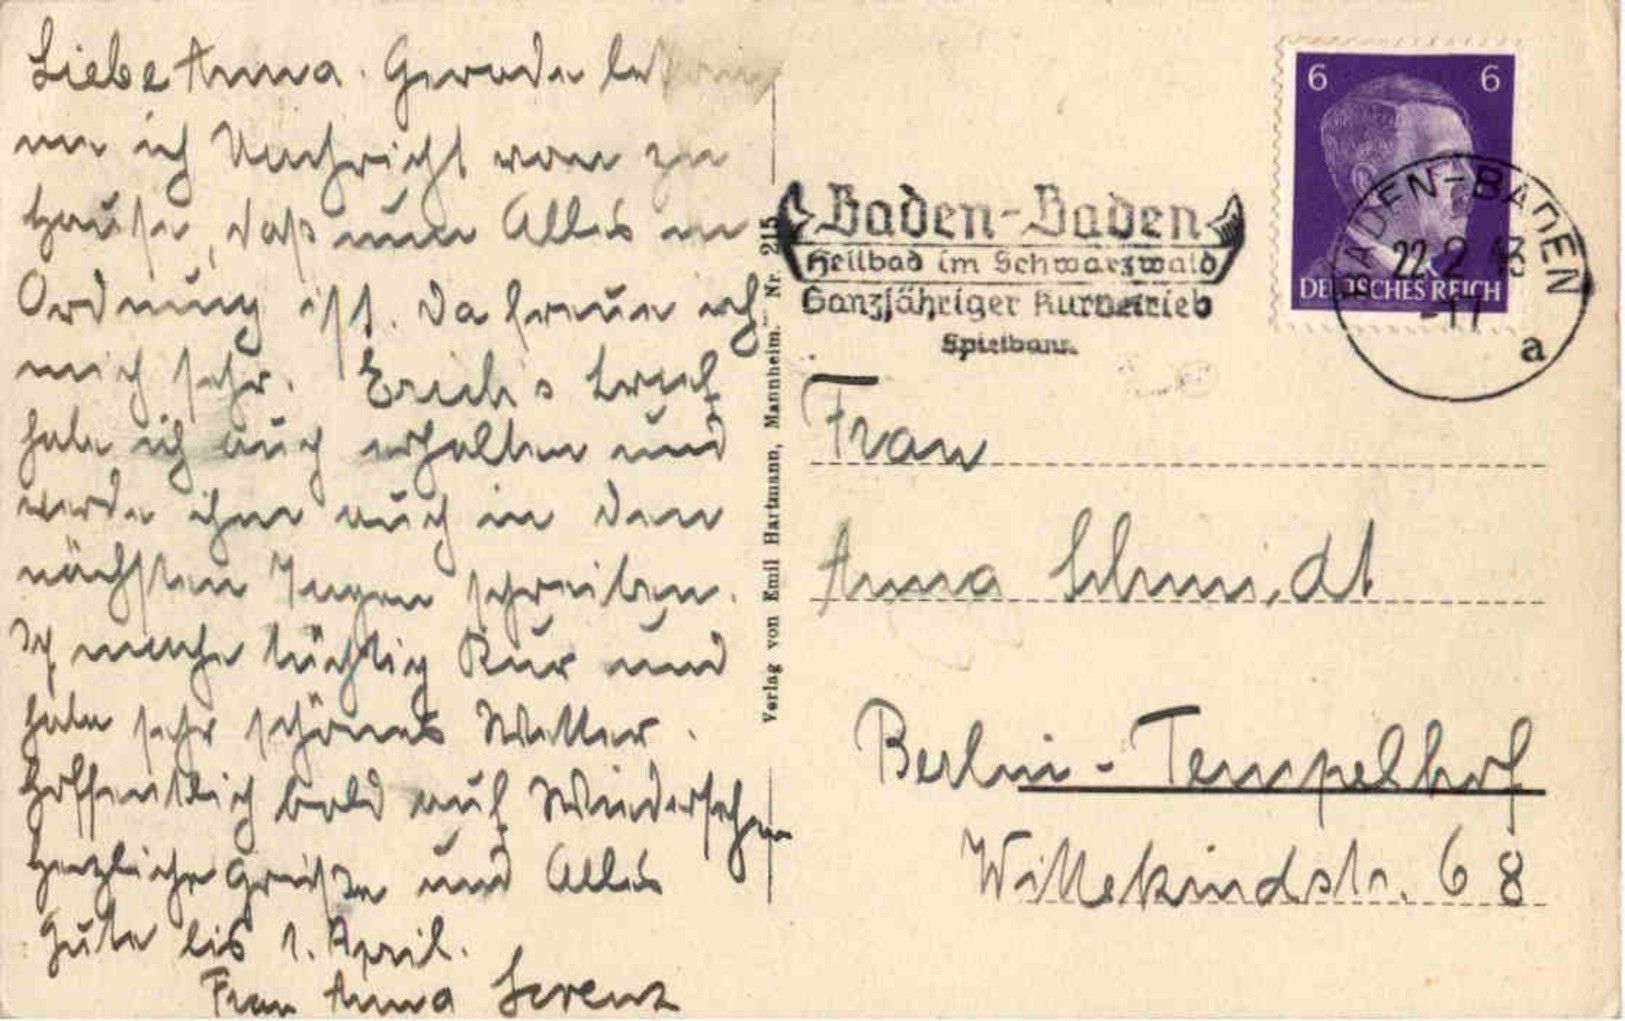 Liebe Anna. Gerade bekom
me ich Nachricht von zu
Hause, daß nun Alles in
Ordnung ist. Da freue ich
mich sehr. Erich's Brief
habe ich auch erhalten und
werde ihm auch in den
nächsten Tagen schreiben.
Ich mache tüchtig Kur und
habe sehr schönes Wetter.
Hoffentlich bald auf Wiedersehen
Herzliche Grüße und Alles
Gute bis 1. April.
Frau Anna Lorenz
Verlag von Emil Hartmann, Mannheim. Nr. 215
Baden-Baden
Heilbad im Schwarzwald
Ganzjähriger Kurbetrieb
Spielbank
6 6
DEUTSCHES REICH
BADEN-BADEN
22.2.43
-17
a
Frau
Anna Schmidt
Berlin-Tempelhof
Wittekindstr. 68